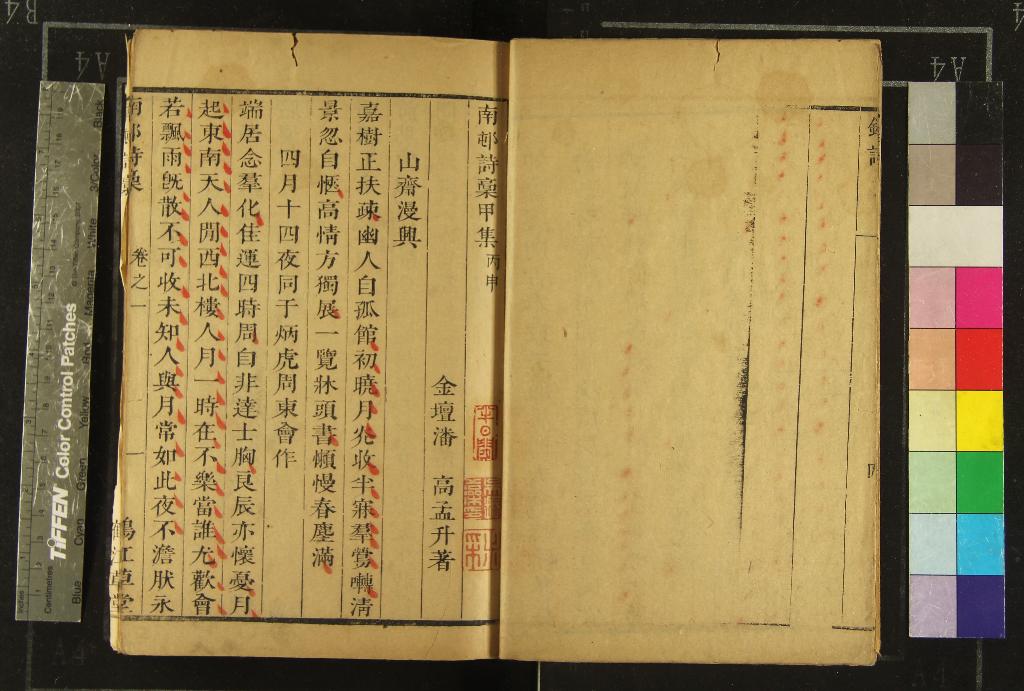 南邨詩稾甲集 丙申
金壇潘　高孟升著
山齋漫興
嘉樹正扶疎幽人自孤館初曉月光收半寤羣鶯囀清
景忽自愜高情方獨展一覽牀頭書懶慢春塵滿
四月十四夜同于炳虎周東會作
端居念羣化佳運四時周自非達士胸良辰亦懷憂月
起東南天人閒西北樓人月一時在不樂當誰尤歡會
若飄雨旣散不可收未知人與月常如此夜不澹狀永
南邨詩稾
卷之一
一
鶴江草堂
TIFFEN Color Control Patches
Inches
Centimetres
Blue
Cyan
Green
Yellow
Red
Magenta
White
3/Color
Black
A4
A4
B4